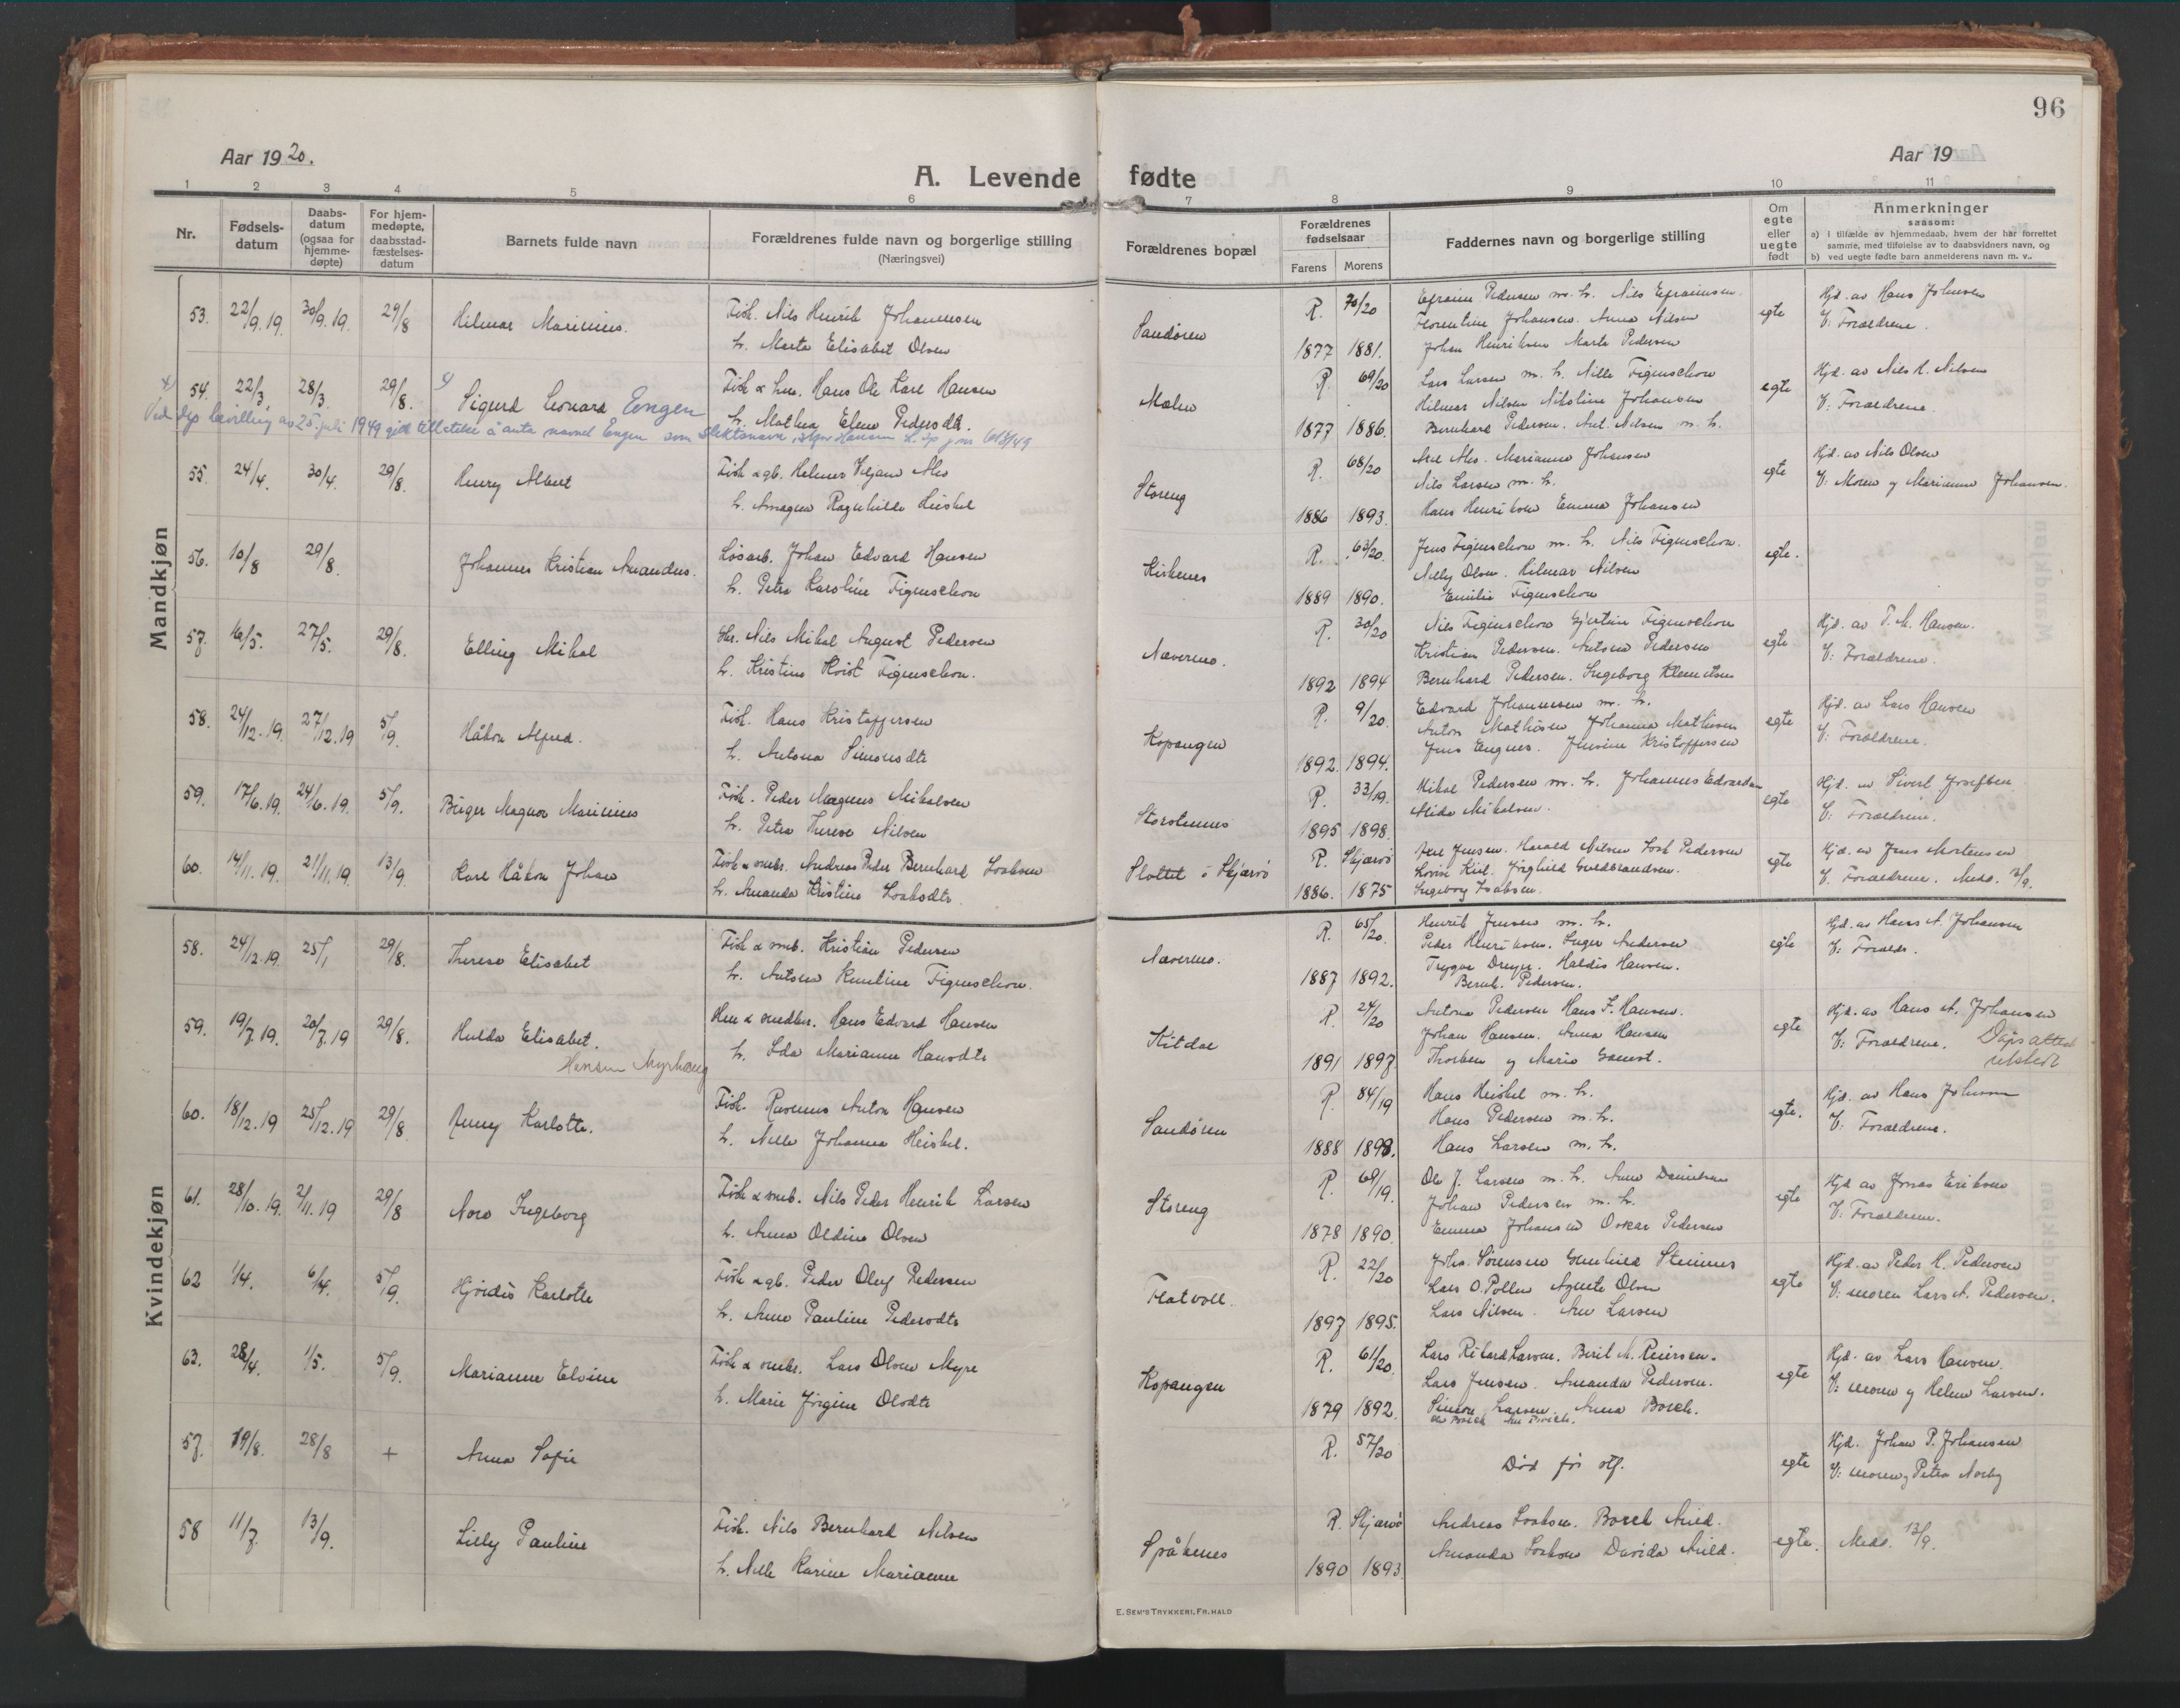 96
Aar 1920.
A. Levende fødte
Aar 19
1 2 3 4 5 6 7 8 9 10 11
Nr.
Fødsels-
datum
Daabs-
datum
(ogsaa for
hjemme-
døpte)
For hjem-
medøpte,
daabsstad-
fæstelses-
datum
Barnets fulde navn
Forældrenes fulde navn og borgerlige stilling
(Næringsvei)
Forældrenes bopæl
Forældrenes
fødselsaar
Farens Morens
Faddernes navn og borgerlige stilling
Om
egte
eller
uegte
født
Anmerkninger
saasom:
a) i tilfælde av hjemmedaab, hvem der har forrettet
samme, med tilføielse av to daabsvidners navn, og
b) ved uegte fødte barn anmelderens navn m. v..
Mandkjøn
53. 22/9.19. 30/9.19. 29/8 Hilmar Marinius. Fisk. Nils Henrik Johannesen
h. Marta Elisabet Olsen
Sandøren R. 70/20 1877 1881.
Efraim Pedersen m. h. Nils Efraimsen.
Florentine Johansen. Anna Nilsen
Johan Henriksen Marta Pedersen
egte Hjd. av Hans Johnsen
V: Forældrene.
54. 22/3 28/3. 29/8. Sigurd Leonard Engen Fisk & hm. Hans Ole Karl Hansen
h. Mathea Elene Pedersdt.
Ved dep bevilling av 25. juli 1949 gitt tillatelse å anta navnet Engen som slektsnavn
Malen R. 69/20 1877 1886.
Lars Larsen m. h. Nille Figenschou
Hilmar Nilsen Nikoline Johansen
Bernhard Pedersen. Anl. Nilsen m. h.
egte Hjd. av Nils H. Nilsen
V: Forældrene.
55. 24/4. 30/4. 29/8. Henry Albert Fisk & gb. Helmer Viljam Alis
h. Amagna Ragnhilde Heiskel
Storeng R. 68/20 1886 1893.
Axel Alis. Marianne Johansen
Nils Larsen m. h.
Hans Henriksen Emma Johansen
egte Hjd. av Nils Olsen
V: Moren og Marianne Johansen.
56. 10/8 29/8. Johannes Kristian Amandus. Løsarb. Johan Edvard Hansen
h. Petra Karoline Figenschou
Kirkenes R. 63/20. 1889 1890.
Jens Figenschou m. h. Nils Figenschou.
Nelly Olsen. Hilmar Nilsen
Emilie Figenschou
egte.
57. 16/5. 27/5. 29/8. Elling Mikal Gbr. Nils Mikal August Pedersen
h. Kristine Kvist Figenschou.
Navernes. R. 30/20 1892 1894
Nils Figenschou Gjertine Figenschou
Kristian Pedersen. Antona Pedersen
Bernhard Pedersen. Ingeborg Klemetsen
egte Hjd. av P. M. Hansen.
V: Forældrene.
58. 24/12.19. 27/12.19 5/9. Håkon Alfred. Fisk. Hans Kristoffersen
h. Antona Simonsdtr
Kopangen R. 9/20. 1892. 1894.
Edvard Johannesen m. h.
Anton Mathisen Johanna Mathisen
Jens Engnes. Jensine Kristoffersen
egte Hjd. av Lars Hansen
V: Forældrene.
59. 17/6.19. 24/6.19. 5/9. Birger Magnor Marinius Fisk. Peder Magnus Mikalsen
h. Petra Therese Nilsen
Storstennes R. 33/19. 1895 1898.
Mikal Pedersen m. h. Johannes Edvardsen
Alida Mikalsen.
egte Hjd. av Sivert Josefsen
V: Forældrene.
60. 14/11.19. 21/11.19. 13/9. Karl Håkon Johan Fisk & smbr. Andreas Peder Bernhard Isaksen
h. Amanda Kristine Isaksdtr.
Slottet i Skjærvø R. Skjærvø 1886. 1875
Axel Jensen. Harald Nilsen Isak Pedersen
Lovise Kiil. Jørghild Guldbrandsen.
Ingeborg Isaksen.
egte Hjd. av Jens Mortensen
V. Forældrene. Medd. 13/9.
Kvindekjøn
58. 24/12.19. 25/1 29/8. Therese Elisabet Fisk & smb. Kristian Pedersen
h. Antona Karoline Figenschou.
Naverness. R. 65/20. 1887 1892.
Henrik Jensen m. h.
Peder Henriksen. Inger Andersen
Trygve Dreyer. Haldis Hansen.
Bernh. Pedersen.
egte Hjd. av Hans A. Johansen
V: Forældr.
59. 19/7.19. 20/7.19 29/8. Hulda Elisabet. Hm & smedbr. Hans Edvard Hansen
Hansen Myrhaug h. Ida Marianne Hansdtr
Kitdal R. 24/20 1891 1897.
Antona Pedersen Hans J. Hansen.
Johan Hansen. Anna Hansen
Thorben og Marie Garnst.
egte Hjd. av Hans A. Johansen
V: Forældrene. Dåpsattest
utstedt
60. 18/12.19 25/12.19 29/8 Jenny Karlotte. Fisk. Rasmus Anton Hansen
h. Nella Johanna Heiskel.
Sandøren R. 84/19 1888 1893.
Hans Heiskel m. h.
Hans Pedersen m. h.
Hans Larsen m. h.
egte. Hjd. av Hans Johnsen
V: Forældrene.
61. 28/10.19. 2/11.19 29/8 Nora Ingeborg Fisk & smb. Nils Peder Henrik Larsen
h. Anna Oldine Olsen
Storeng R. 69/19. 1878 1890.
Ole J. Larsen m. h. Anne Danielsen
Johan Pedersen m. h.
Emma Johansen Oskar Pedersen
egte Hjd av Jonas Eriksen
V: Forældrene.
62 1/4. 6/4. 5/9. Hjørdis Karlotte Fisk & gb. Peder Oluf Pedersen
h. Anne Pauline Pedersdtr
Flatvoll. R. 22/20 1897 1895.
Johs. Sørensen Gunhild Steinnes
Lars O. Pollen Agnete Olsen
Lars Nilsen. Ane Larsen
egte Hjd. av Peder H. Pedersen
V: moren Lars A. Pedersen.
63. 28/4. 1/5. 5/9. Marianne Elvine Fisk & smbr. Lars Olsen Myre
h. Marie Jørgine Olsdtr
Kopangen R. 61/20. 1879 1892.
Lars Rikard Larsen. Beril M. Reiersen.
Lars Jensen. Amanda Pedersen.
Simon Larsen. Anna Borch.
egte Hjd. av Lars Hansen.
V: moren og Helene Larsen.
57. 19/8. 28/8 + Anna Sofie R. 57/20 Død før stf. egte Hjd. Johan P. Johansen
V: moren og Petra Norby
58 11/7. 13/9. Lilly Pauline Fisk. Nils Bernhard Nilsen
h. Nelle Karine Marianne
Spåknes R. Skjærvø 1890 1893
Andreas Isaksen. Borch Arild.
Amanda Isaksen Davida Arild.
egte. Medd. 13/9.
E. SEM'S TRYKKERI, FR.HALD